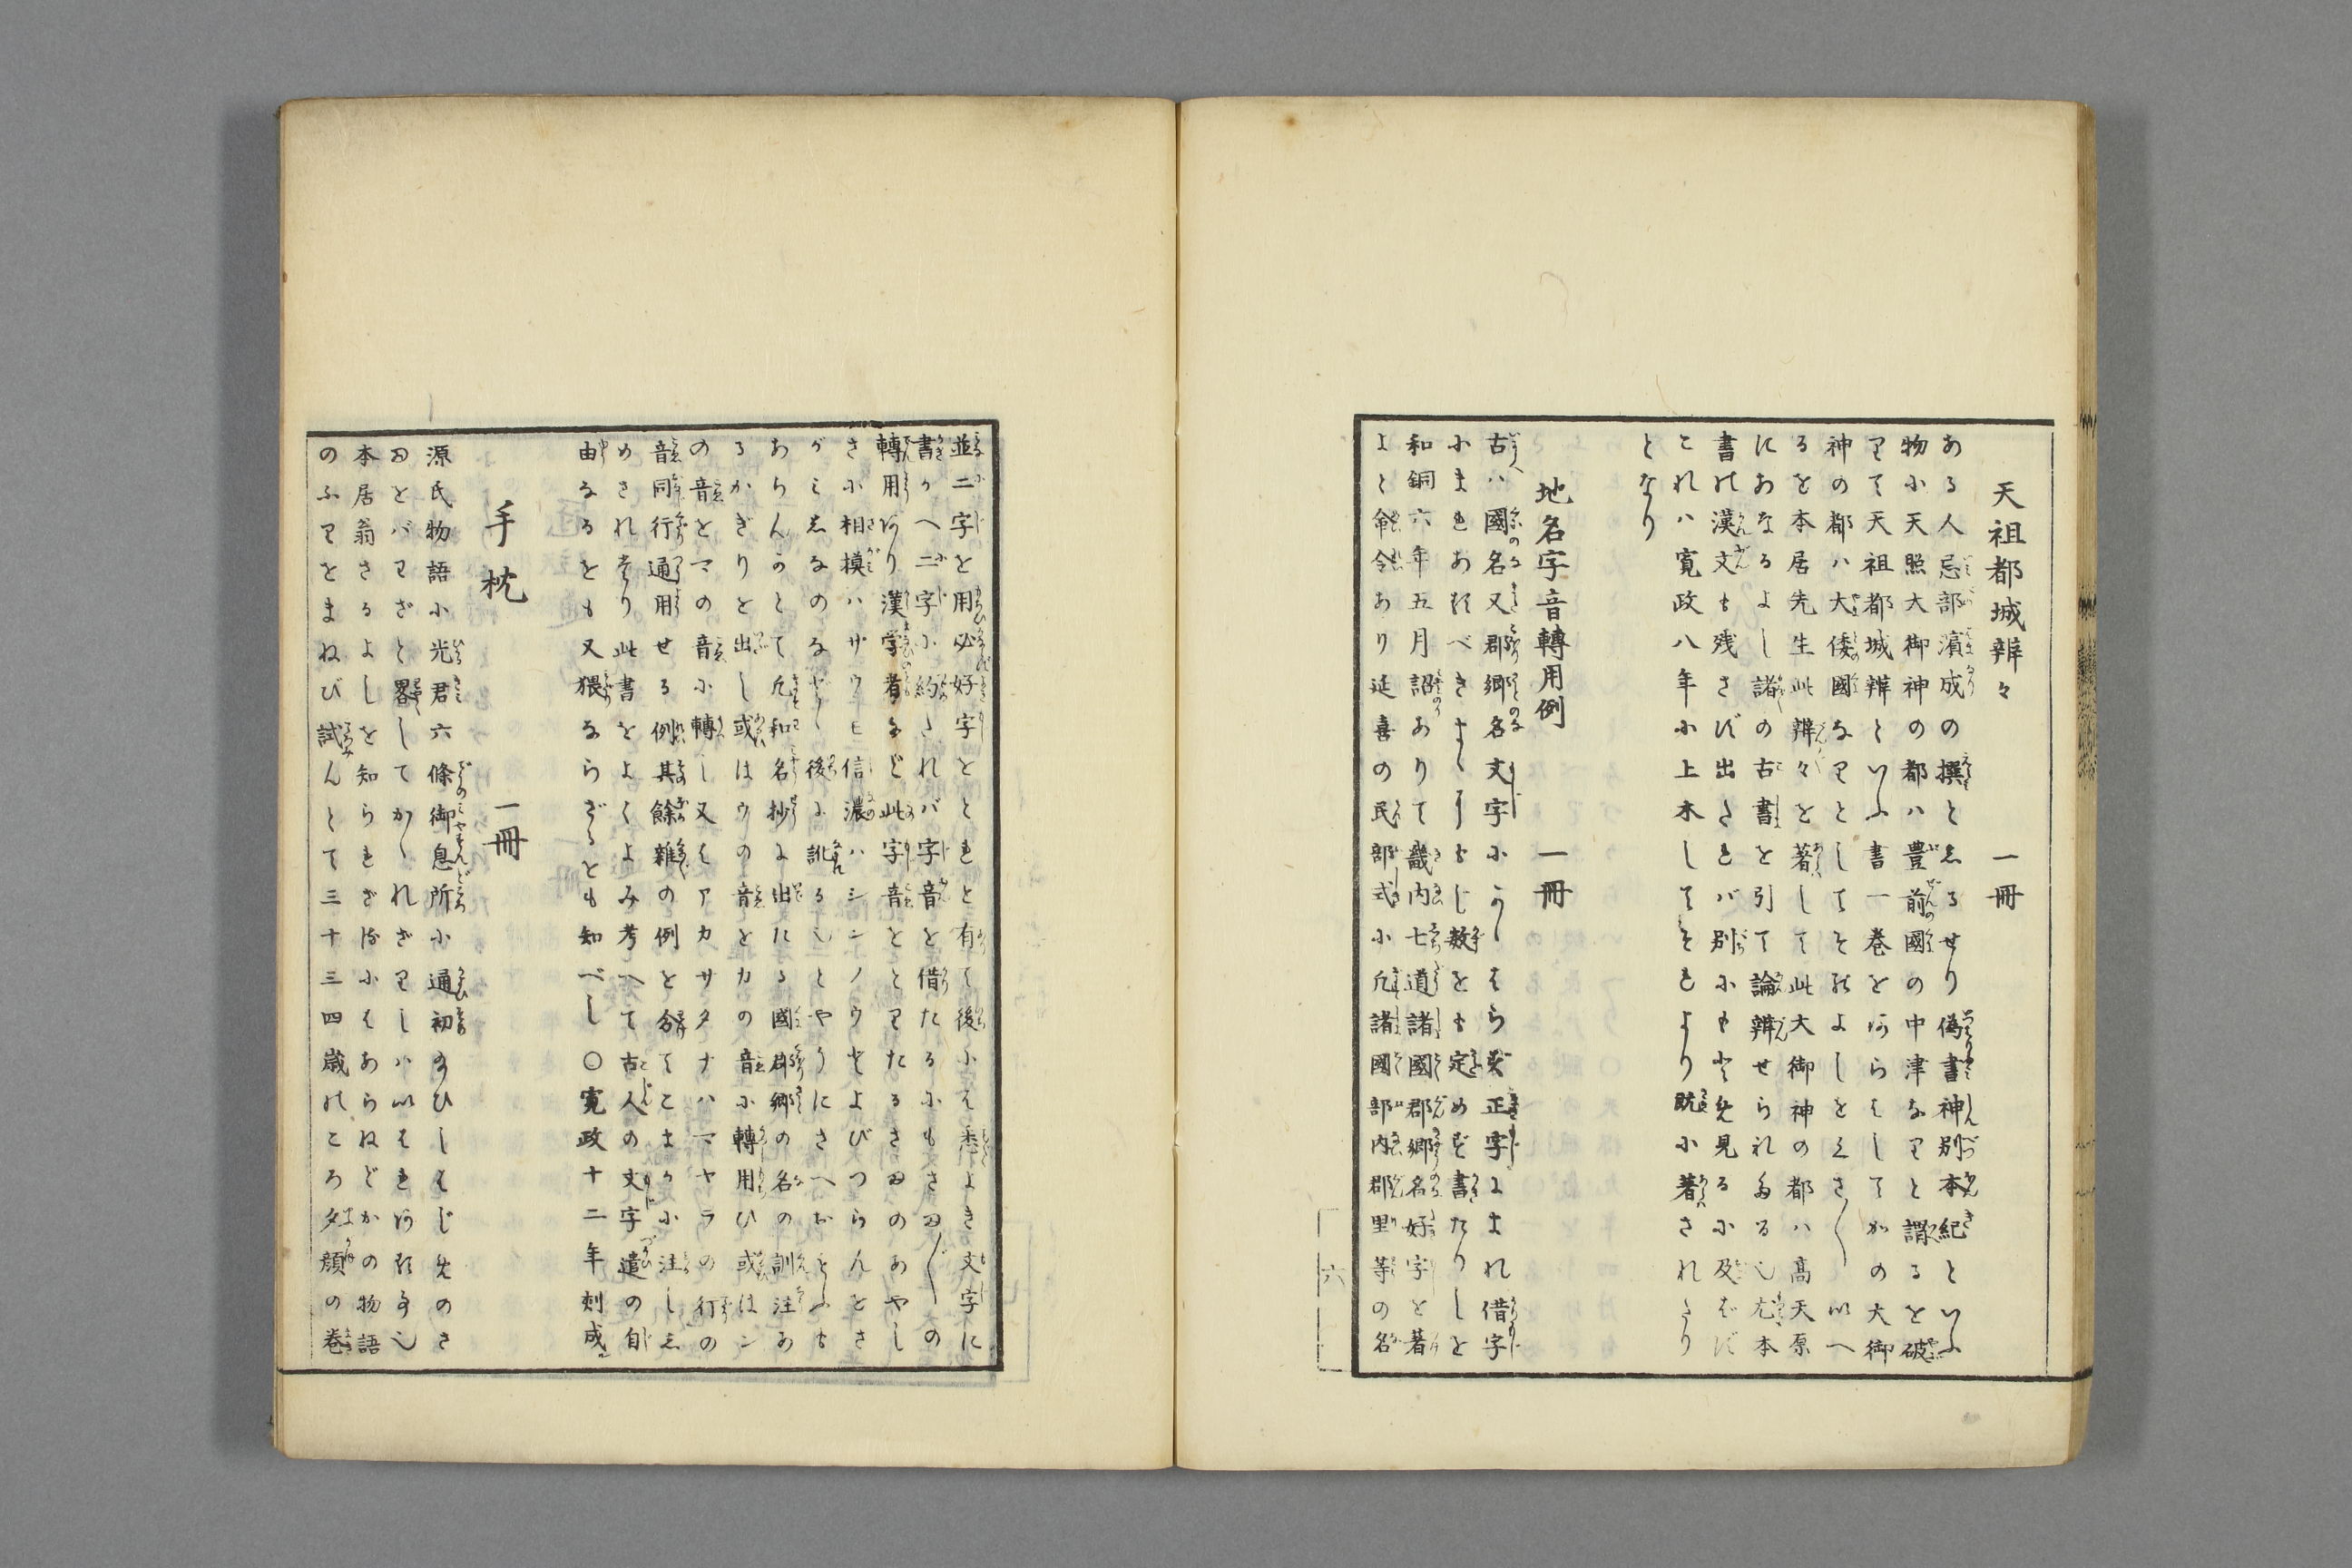 天祖都城辨々　一冊
ある人忌部濱成の撰としるせり偽書神別本紀といふ
物に天照大御神の都ハ豊前國の中津なりと謂るを破
りて天祖都城辨といふ書一巻をあらはしてかの大御
神の都ハ大倭國なりとしてそのよしをくさ〲いへ
るを本居先生此辨々を著して此大御神の都ハ高天原
にあなるよし諸の古書を引て論辨せられたる也尤本
書の漢文も残さず出されバ別にもとめ見るに及ばず
これハ寛政八年に上木してそれより以前に著されたり
となり
地名字音轉用例　一冊
古ハ國名又郡郷名文字にかゝはらず正字にまれ借字
にまれあるべきまゝにもじ数をも定めず書たりしを
和銅六年五月詔ありて畿内七道諸國郡郷名好字を著
よと命令あり延喜の民部式に凡諸國部内郡里等の名
並二字を用必好字をとれと有て後には悉よき文字に
書かへ二字に約されバ字音を借たるにもさま〲の
轉用あり漢学者など此字音をとりたるさまのあやし
さに相模ハサウモ信濃ハシンノウとよびつらんをさ
がみしなのなど後に訛る也とやうにさへおもふも
あらんかとて凡和名抄に出たる國郡郷の名の訓注あ
るかぎりを出し或はウの音をカの音に轉用ひ或はン
の音をマの音に轉し又はアカサタナハマヤラの行の
音同行通用せる例其餘雑の例を分てこまかに注しし
めされたり此書をよくよみ考へて古人の文字遣の自
由なるをも又猥ならざるをも知べし〇寛政十二年刻成
手枕　一冊
源氏物語に光君六條御息所に通初のひしはじめのさ
まをバわざと畧してかゝれざりしハいはれある事也
本居翁さるよしを知られざるにはあらねどかの物語
のふりをまねび試んとて三十三四歳のころ夕顔の巻
六